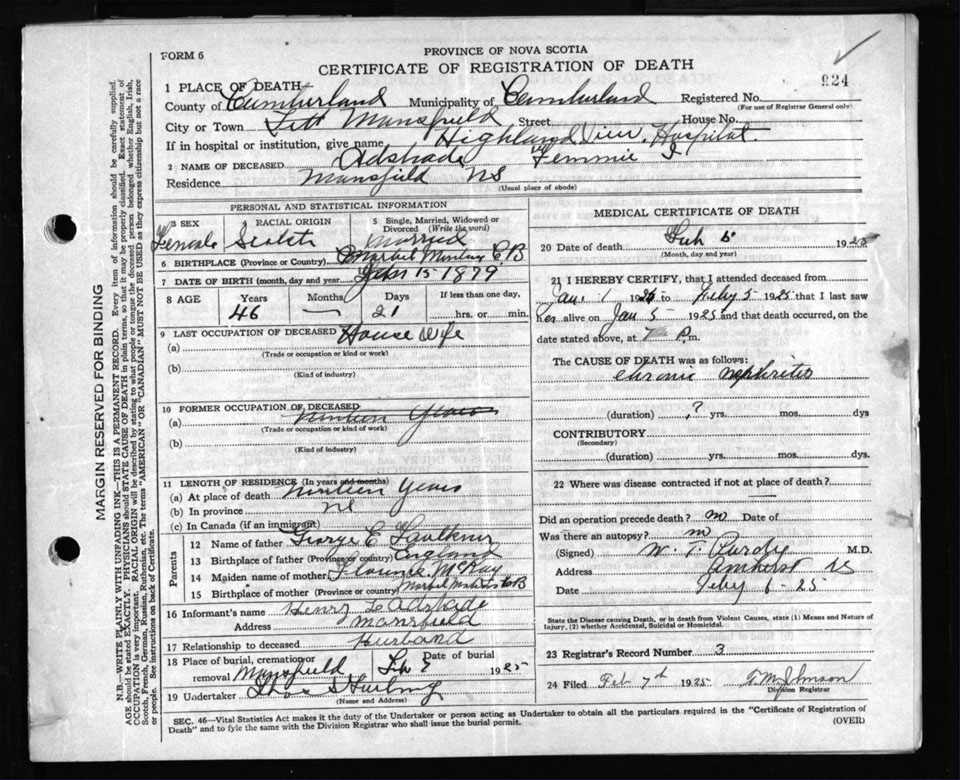 FORM 6
PROVINCE OF NOVA SCOTIA
CERTIFICATE OF REGISTRATION OF DEATH
924
1 PLACE OF DEATH
County of Cumberland Municipality of Cumberland Registered No.
(For use of Registrar General only)
City or Town Mansfield Street House No.
If in hospital or institution, give name Highland View Hospital
2 NAME OF DECEASED Adshade Femmie I
Residence Mansfield NS
(Usual place of abode)
PERSONAL AND STATISTICAL INFORMATION
3 SEX 4 RACIAL ORIGIN 5 Single, Married, Widowed or Divorced (Write the word)
Female Scotch Married
6 BIRTHPLACE (Province or Country) C.B
7 DATE OF BIRTH (month, day and year) Jan 15 1879
8 AGE Years Months Days If less than one day,
46 — 21 hrs. or min.
9 LAST OCCUPATION OF DECEASED House Wife
(a)
(Trade or occupation or kind or work)
(b)
(Kind of industry)
10 FORMER OCCUPATION OF DECEASED
(a) nineteen Years
(Trade or occupation or kind of work)
(b)
(Kind of industry)
11 LENGTH OF RESIDENCE (In years and months)
(a) At place of death nineteen Years
(b) In province
(c) In Canada (if an immigrant)
Parents
12 Name of father George E Faulkner
13 Birthplace of father (Province or country) England
14 Maiden name of mother McKay
15 Birthplace of mother (Province or country) CB
16 Informant's name Henry Adshade
Address Mansfield
17 Relationship to deceased Husband
18 Place of burial, cremation or removal Mansfield Date of burial Feb 7 1925
19 Undertaker
(Name and Address)
MEDICAL CERTIFICATE OF DEATH
20 Date of death Feb 5 1925
(Month, day and year)
21 I HEREBY CERTIFY, that I attended deceased from
Jan. 1 1925 to Feby 5 1925 that I last saw
her alive on Jan 5 1925 and that death occurred, on
date stated above, at 7 P.m.
The CAUSE OF DEATH was as follows:
chronic nephritis
(duration) ? yrs. mos. dys
CONTRIBUTORY
(Secondary)
(duration) yrs. mos. dys.
22 Where was disease contracted if not at place of death?
—
Did an operation precede death? no Date of
Was there an autopsy? no
(Signed) W. T. Purdy M.D.
Address Amherst NS
Date Feby 6 - 25
State the Disease causing Death, or in death from Violent Causes, state (1) Means and Nature of Injury, (2) whether Accidental, Suicidal or Homicidal.
23 Registrar's Record Number 3
24 Filed Feb 7th 1925 Johnson
Division Registrar
SEC. 46—Vital Statistics Act makes it the duty of the Undertaker or person acting as Undertaker to obtain all the particulars required in the "Certificate of Registration of
Death" and to fyle the same with the Division Registrar who shall issue the burial permit.
(OVER)
MARGIN RESERVED FOR BINDING
N.B.—WRITE PLAINLY WITH UNFADING INK—THIS IS A PERMANENT RECORD. Every item of information should be carefully supplied.
AGE should be stated EXACTLY. PHYSICIANS should STATE CAUSE OF DEATH in plain terms, so that it may be properly classified. Exact statement of
OCCUPATION is very important. RACIAL ORIGIN will be described by stating to what people or tongue the deceased person belonged whether English, Irish,
Scotch, French, German, Russian, Ruthenian, etc. The terms "AMERICAN" OR "CANADIAN" MUST NOT BE USED as they express citizenship but not a race
or people. See instructions on back of Certificate.